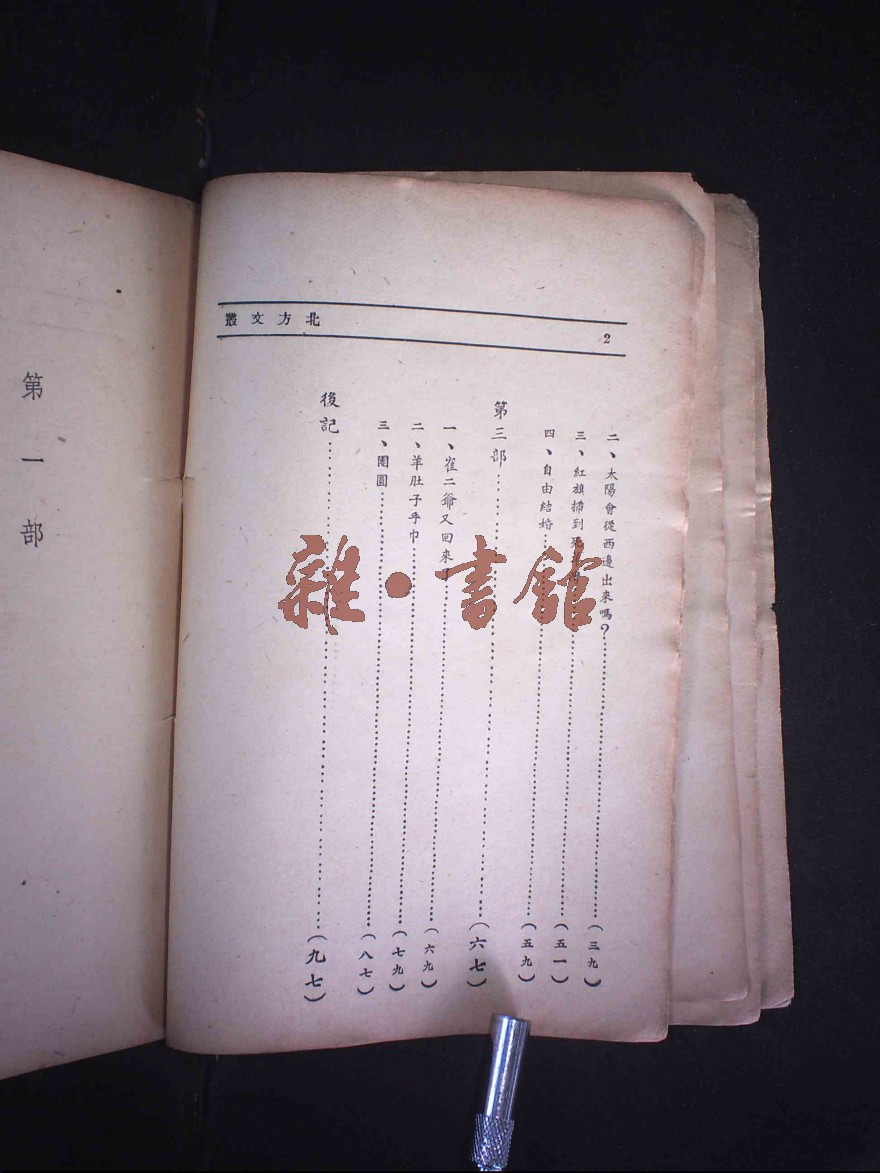 北方文叢
2
二、太陽會從西邊出來嗎?……(三九)
三、紅旗揷到死……(五一)
四、自由結婚……(五九)
第三部……(六七)
一、崔二爺又回來……(六九)
二、羊肚子手巾……(七九)
三、團圓……(八七)
後記……(九七)
第一部
雜·書館